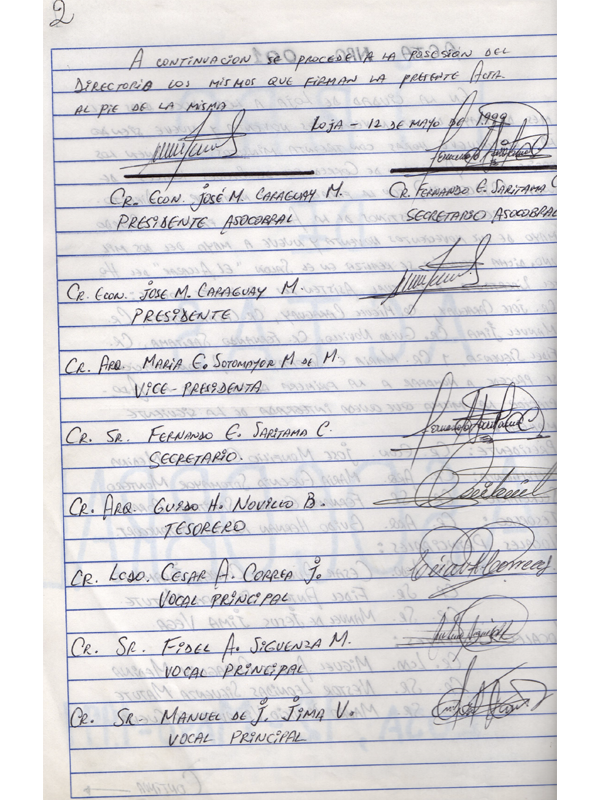 2
A CONTINUACION SE PROCEDE A LA POSESION DEL
DIRECTORIA LOS MISMOS QUE FIRMAN LA PRESENTE ACTA
AL PIE DE LA MISMA
LOJA - 12 DE MAYO DE 1999
CR. ECON. JOSÉ M. CARAGUAY M.
CR. FERNANDO E. SARITAMA C
PRESIDENTE ASOCOBRAL
SECRETARIO ASOCOBRAL
CR. ECON. JOSE M. CARAGUAY M.
PRESIDENTE
CR. ARQ. MARIA E. SOTOMAYOR M. DE M.
VICE-PRESIDENTA
CR. SR. FERNANDO E. SARITAMA C.
SECRETARIO.
CR. ARQ. GUIDO H. NOVILLO B.
TESORERO
CR. LCDO. CESAR A. CORREA J.
VOCAL PRINCIPAL
CR. SR. FIDEL A. SIGUENZA M.
VOCAL PRINCIPAL
CR. SR. MANUEL DE J. JIMA V.
VOCAL PRINCIPAL